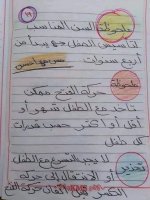 ١٩
ملحوظة السن المناسب
لتأسيس الطفل هو بدءاً من
أربع سنوات
ملحوظة حركة الفتح ممكن
تاخد مع الطفل شهر أو
أقل أو أكتر حسب قدرات
كل طفل
تحذير لا يجب التسرع مع الطفل
أو الانتقال إلى حركة
الكسر قبل اتقان حركة الفتح